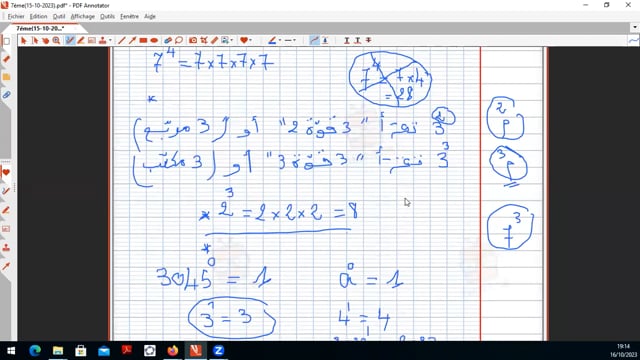 7ème(15-10-2023).pdf* - PDF Annotator
Fichier Edition Affichage Document Outils Aide
7ème(15-10-20...*
7⁴ = 7 × 7 × 7 × 7
7⁴ = 7 × 4
= 28
*
3² تقرأ "3 قوّة 2" أو (3 مربّع)
3³ تقرأ "3 قوّة 3" أو (3 مكعّب)
* 2³ = 2 × 2 × 2 = 8
*
3045⁰ = 1 a⁰ = 1
3¹ = 3 4¹ = 4
م²
م³
7³
19:14
16/10/2023